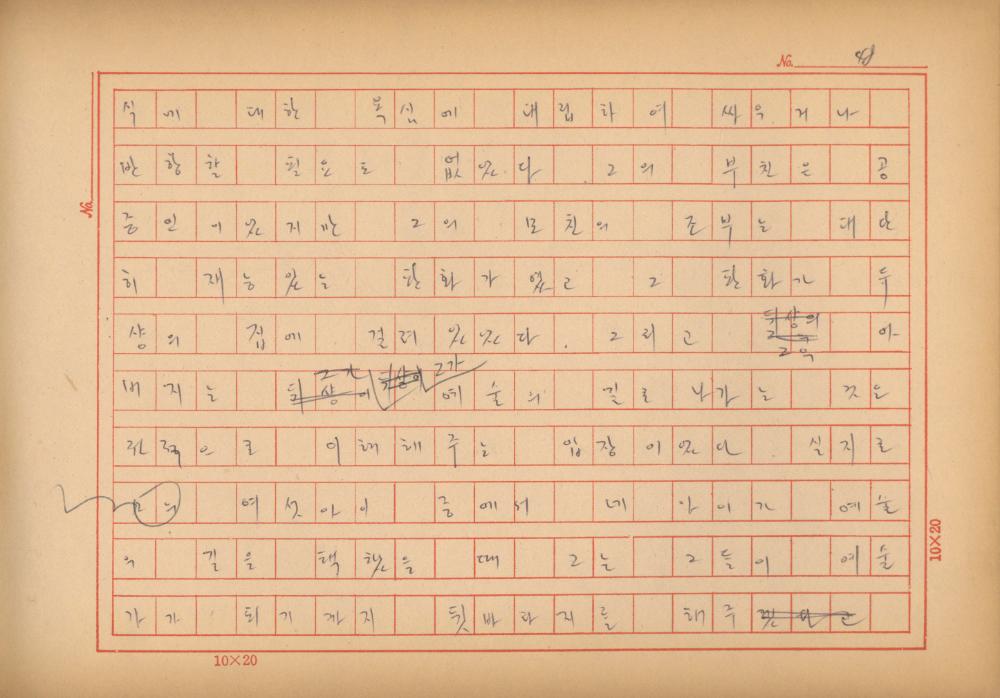 No.
식에 대한 욕심에 대립하여 싸우거나
반항할 필요도 없었다. 그의 부친은 공
증인이었지만 그의 모친의 조부는 대단
히 재능있는 판화가였고 그 판화가 뒤
샹의 집에 걸려 있었다. 그리고 뒤샹의 그의 아
버지는 뒤샹이 그가 뒤샹이 그가 예술의 길로 나가는 것은
전적으로 이해해주는 입장이었다. 실지로
그의 여섯아이 중에서 네 아이가 예술
의 길을 택했을 때 그는 그들이 예술
가가 되기까지 뒷바라지를 해주
No.
10×20
10×20